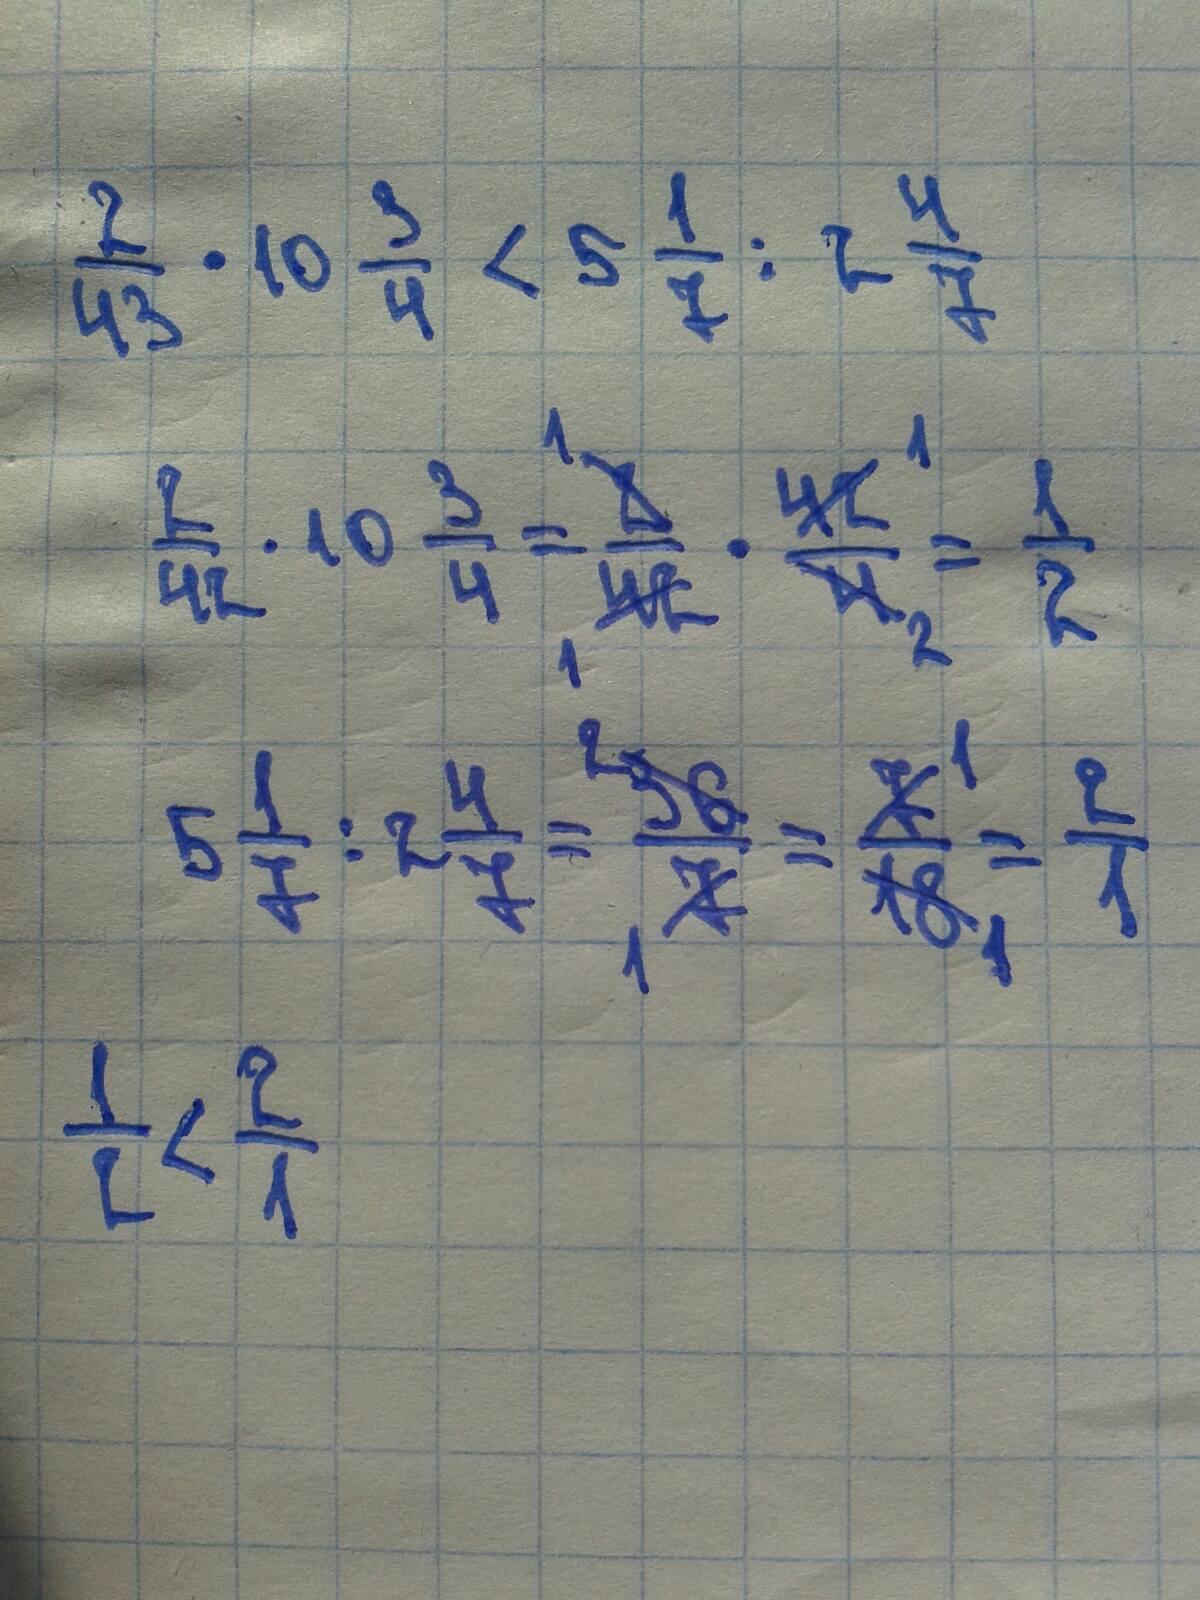 2/43 · 10 3/4 < 5 1/7 : 2 4/7
2/42 · 10 3/4 = 1 2/42 1 · 42/4 1 2 = 1/2
5 1/7 : 2 4/7 = 2 36/7 1 = 7/18 1 1 = 2/1
1/2 < 2/1